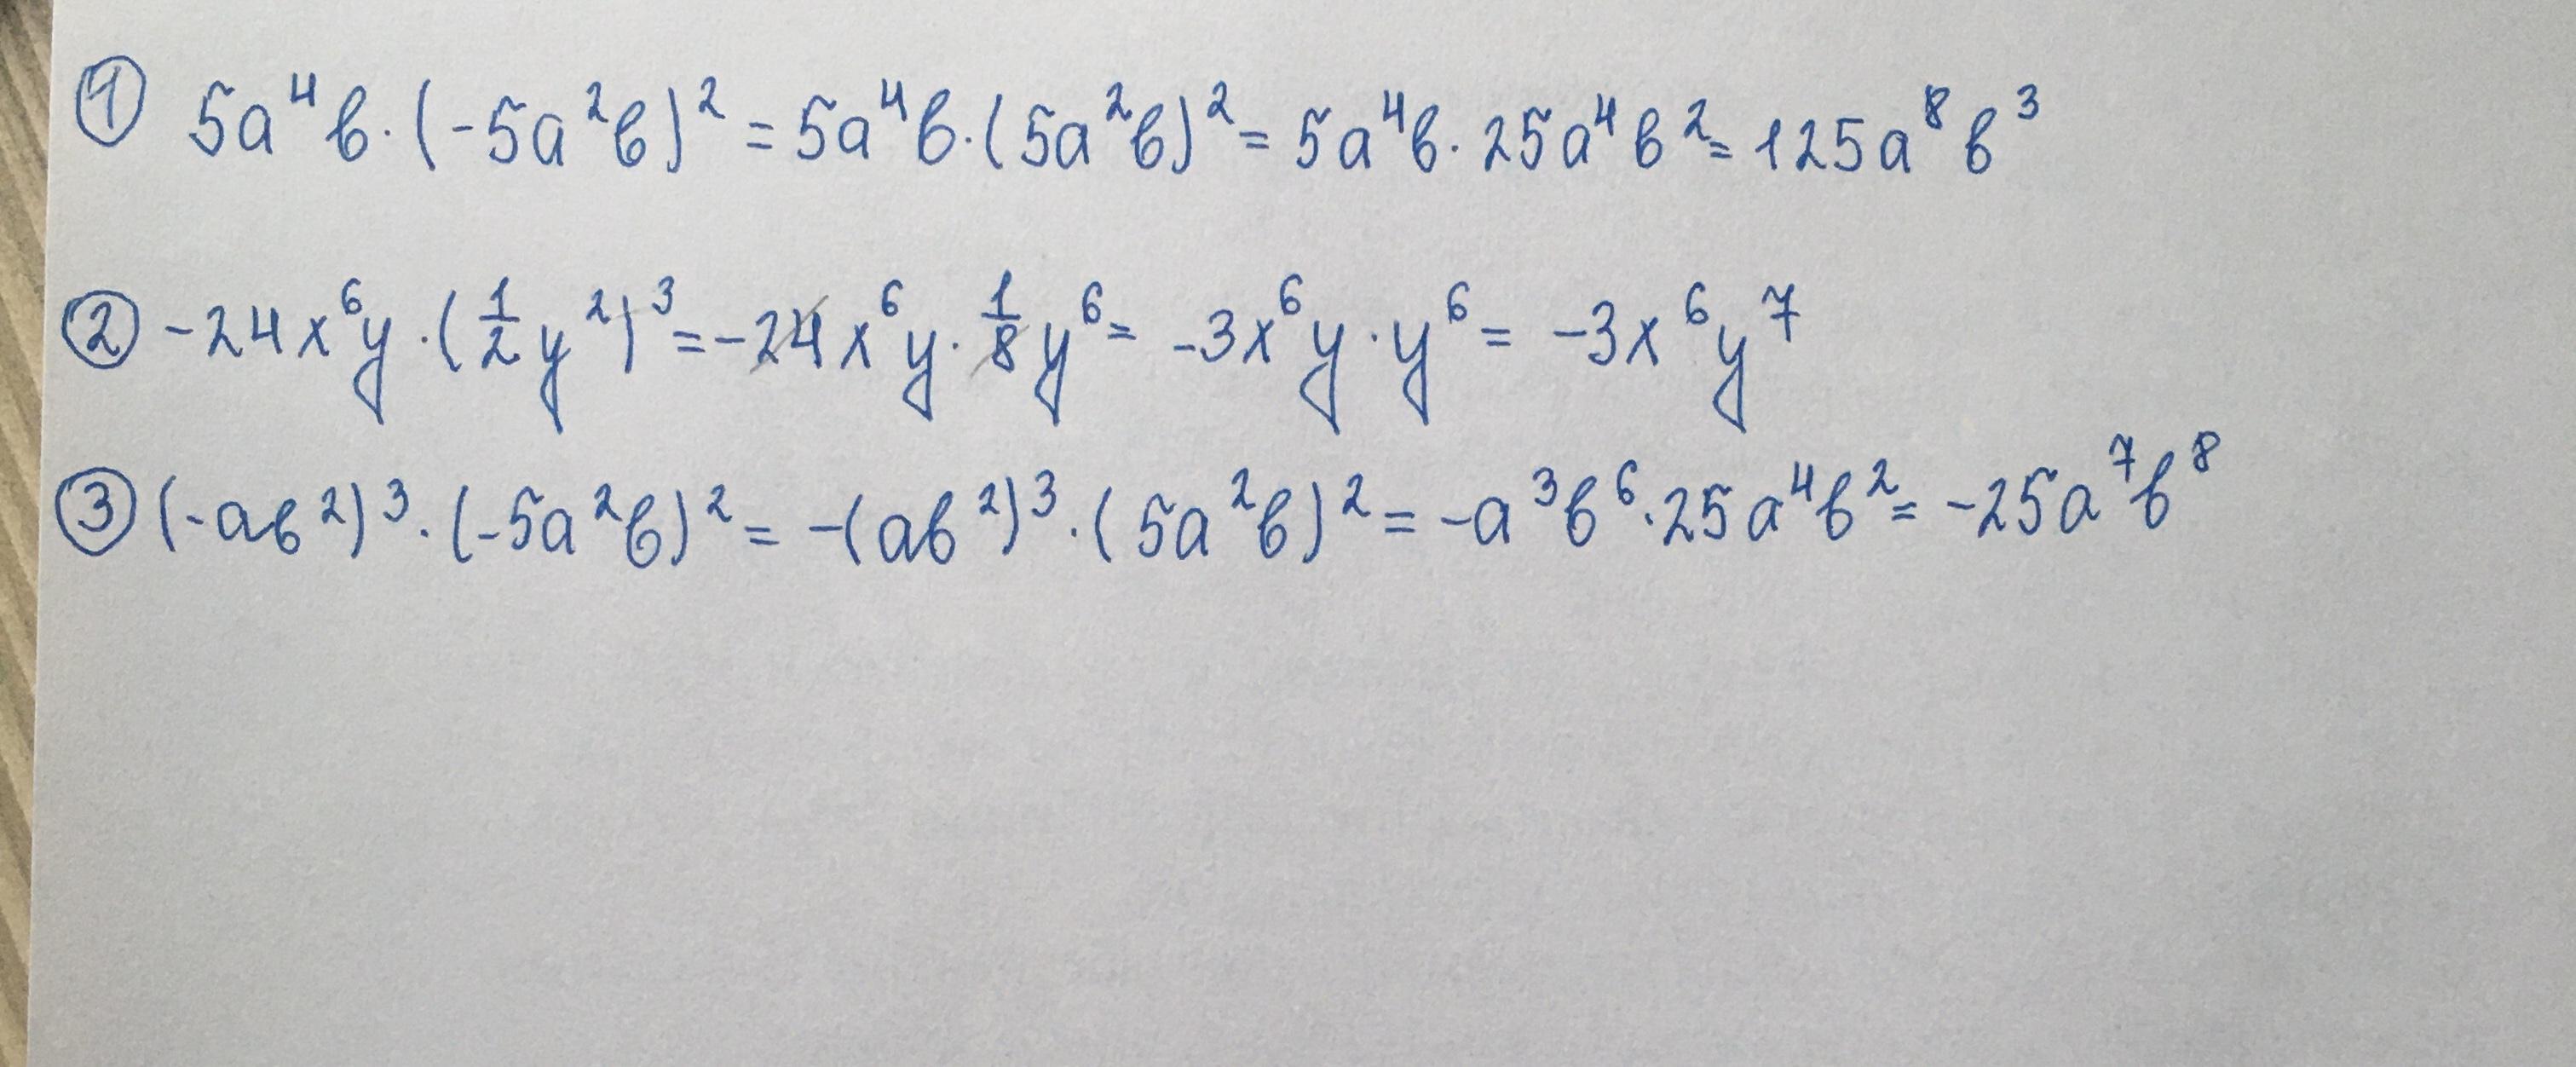 ① 5a⁴в·(-5a²в)² = 5a⁴в·(5a²в)² = 5a⁴в·25a⁴в² = 125a⁸в³
② -24x⁶y·(1/2 y²)³ = -24x⁶y·1/8 y⁶ = -3x⁶y·y⁶ = -3x⁶y⁷
③ (-aв²)³·(-5a²в)² = -(aв²)³·(5a²в)² = -a³в⁶·25a⁴в² = -25a⁷в⁸